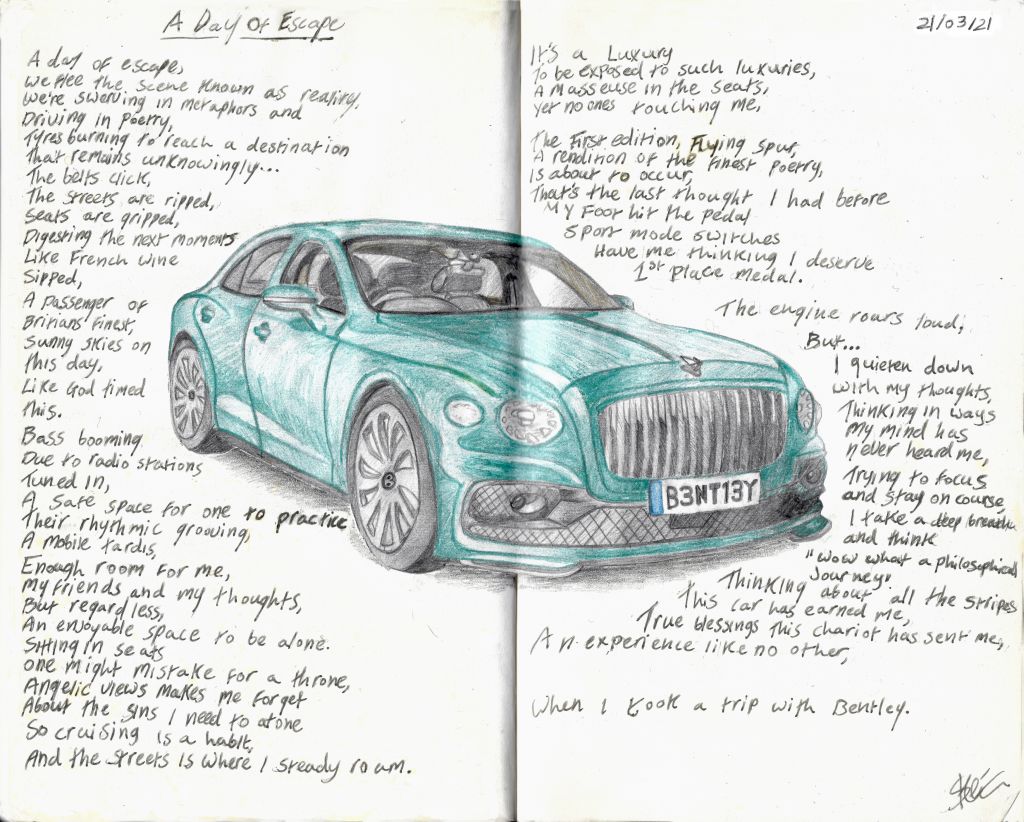 A Day Of Escape
21/03/21
A day of escape,
We flee the scene known as reality,
We're swerving in metaphors and
Driving in Poetry,
Tyres burning to reach a destination
That remains unknowingly...
The belts click,
The streets are ripped,
Seats are gripped,
Digesting the next moments
Like French wine
Sipped,
A passenger of
Britians' finest,
Sunny skies on
this day,
Like God timed
this.
Bass booming
Due to radio stations
Tuned in,
A safe space for one to practice
Their rhythmic grooving,
A mobile tardis,
Enough room for me,
my friends and my thoughts,
But regardless,
An enjoyable space to be alone.
Sitting in seats
one might mistake for a throne,
Angelic views makes me forget
About the sins I need to atone
So cruising is a habit,
And the streets is where I steady roam.
It's a Luxury
To be exposed to such luxuries,
A masseuse in the seats,
Yet no ones touching me,
The First edition, Flying spur,
A rendition of the finest poetry,
Is about to occur,
That's the last thought I had before
My Foot hit the pedal
Sport mode switches
Have me thinking I deserve
1st Place Medal.
The engine roars loud,
But...
I quieten down
with my thoughts,
Thinking in ways
my mind has
never heard me,
Trying to focus
and stay on course,
I take a deep breath
and think
"wow what a philosophical
Journey"
Thinking about all the stripes
This car has earned me,
True blessings this chariot has sent me,
An experience like no other,
When I took a trip with Bentley.
B3NT13Y
B